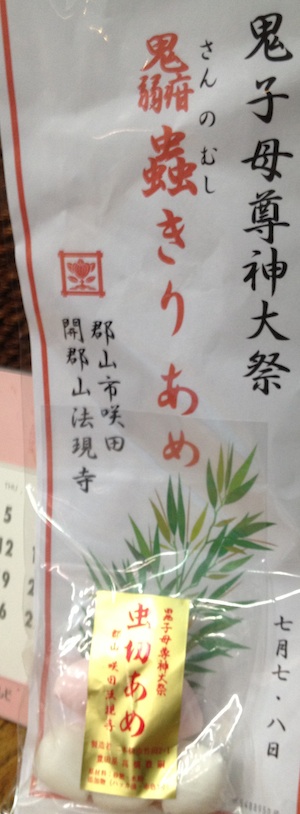 鬼子母尊神大祭
さんのむし
蟲きりあめ
郡山市咲田
開郡山法現寺
七月七・八日
鬼子母尊神大祭
虫切あめ
郡山 咲田法現寺
THU
5
12
9
6